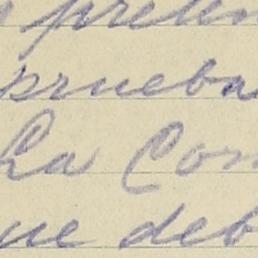 prelim
prueba
La Com
que deb